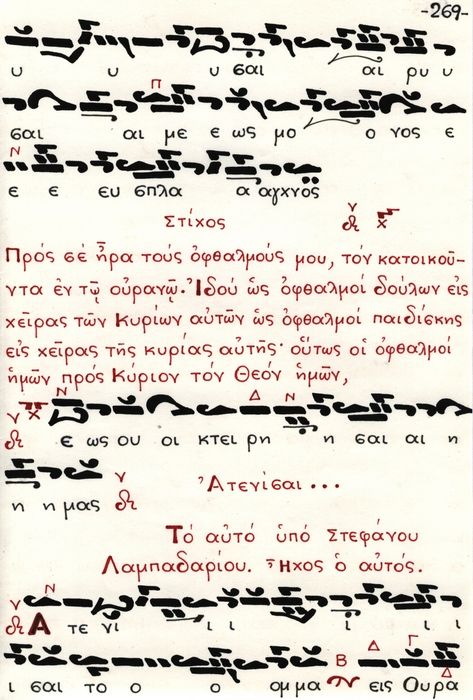 -269-
υ υ υ σαι αι ρυ υ
Π
σαι αι με ε ως μο ο νος ε
Ν
ε ε ευ σπλα α αγχνος
Στίχος
Πρός σέ ἦρα τούς ὀφθαλμούς μου, τόν κατοικοῦ-
ντα ἐν τῷ οὐρανῷ. Ἰδού ὡς ὀφθαλμοί δούλων εἰς
χεῖρας τῶν Κυρίων αὐτῶν ὡς ὀφθαλμοί παιδίσκης
εἰς χεῖρας τῆς κυρίας αὐτῆς· οὕτως οἱ ὀφθαλμοί
ἡμῶν πρός Κύριον τόν Θεόν ἡμῶν,
Ν Δ Ν
ε ως ου οι κτει ρη η σαι αι η
η η μας
Ἀτενίσαι...
Τό αὐτό ὑπό Στεφάνου
Λαμπαδαρίου. Ἦχος ὁ αὐτός.
Ν
Α τε νι ι ι ι ι ι
Β Δ Γ Δ
ι σαι το ο ο ομ μα εις Ουρα